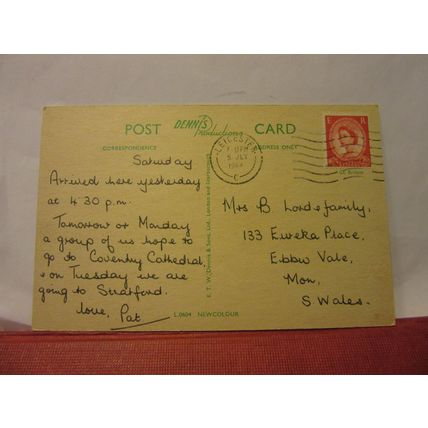 POST DENNIS Productions CARD
CORRESPONDENCE ADDRESS ONLY
Saturday
Arrived here yesterday
at 4 30 p.m.
Tomorrow or Monday
a group of us hope to
go to Coventry Cathedral,
+ on Tuesday we are
going to Stratford.
love, Pat
E.T.W. Dennis & Sons, Ltd., London and Scarborough
L.0604 NEWCOLOUR
LEICESTER
5 JLY
1964
C
E R
Mrs B. Lord & family,
133 Eureka Place,
Ebbw Vale,
Mon,
S. Wales.